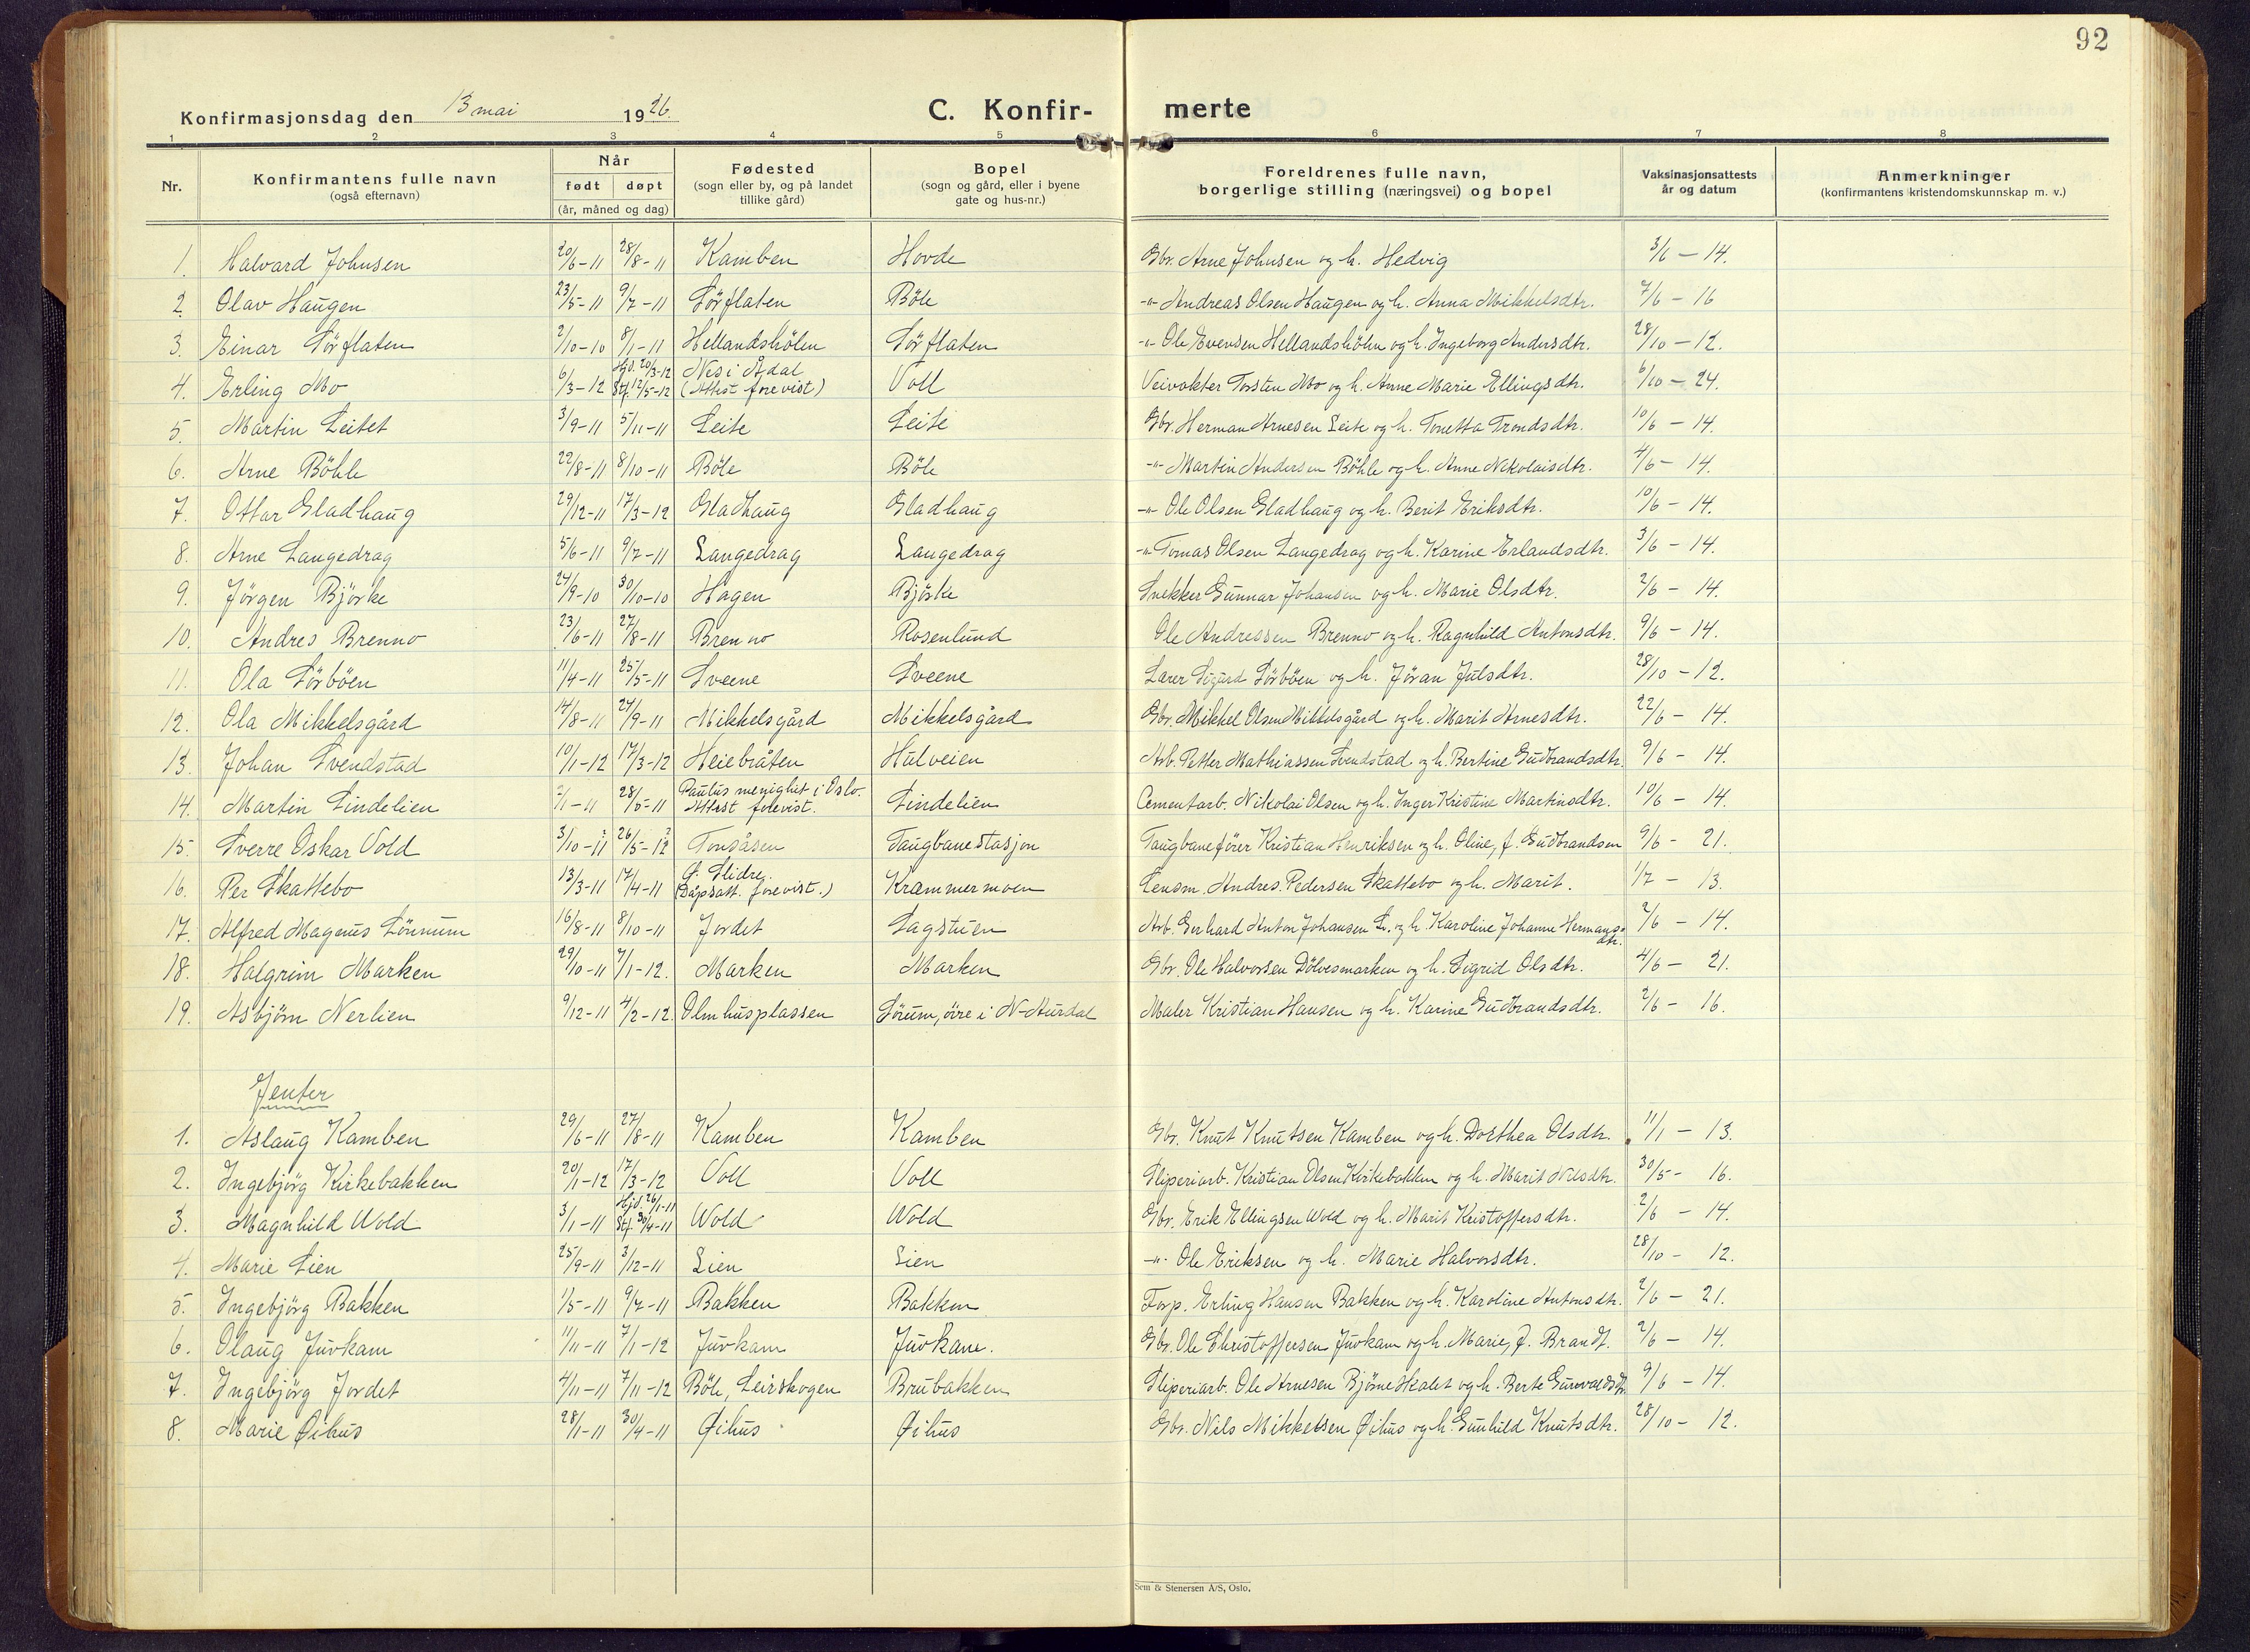 92
Konfirmasjonsdag den 13 mai 1926. C. Konfir- merte
1 2 3 4 5 6 7 8
Nr. Konfirmantens fulle navn (også efternavn) Når født døpt (år, måned og dag) Fødested (sogn eller by, og på landet tillike gård) Bopel (sogn og gård, eller i byene gate og hus-nr.) Foreldrenes fulle navn, borgerlige stilling (næringsvei) og bopel Vaksinasjonsattests år og datum Anmerkninger (konfirmantens kristendomskunnskap m. v.)
1. Halvard Johnsen 20/6-11 28/8-11 Kamben Hovde Gbr. Arne Johnsen og h. Hedvig 3/6 - 14.
2. Olav Haugen 23/5-11 9/7-11 Sörflaten Böle -"- Andreas Olsen Haugen og h. Anna Mikkelsdtr. 7/6 - 16
3. Einar Sörflaten 2/10-10 8/1-11 Hellandshölen Sörflaten -"- Ole Evensen Hellandshölen og h. Ingeborg Andersdtr. 28/10 - 12.
4. Erling Mo 6/3-12 Hjd. 20/3-12 Stf. 12/5-12 Nes i Ådal (Attest forevist) Voll Veivokter Torsten Mo og h. Anne Marie Ellingsdtr. 6/10 - 24.
5. Martin Leitet 3/9-11 5/11-11 Leite Leite Gbr. Herman Arnesen Leite og h. Tonetta Trondsdtr. 10/6 - 14.
6. Arne Böhle 22/8-11 8/10-11 Böle Böle -"- Martin Andersen Böhle og h. Anne Nikolaisdtr. 4/6 - 14.
7. Ottar Gladhaug 29/12-11 17/3-12 Gladhaug Gladhaug -"- Ole Olsen Gladhaug og h. Berit Eriksdtr. 10/6 - 14.
8. Arne Langedrag 5/6-11 9/7-11 Langedrag Langedrag -"- Tomas Olsen Langedrag og h. Karine Erlandsdtr. 3/6 - 14.
9. Jörgen Björke 24/9-10 30/10-10 Hagen Björke Snekker Gunnar Johansen og h. Marie Olsdtr. 2/6 - 14.
10. Andres Brenno 23/6-11 27/8-11 Brenno Rosenlund Ole Andressen Brenno og h. Ragnhild Antonsdtr. 9/6 - 14.
11. Ola Sörböen 11/4-11 25/5-11 Sveene Sveene Lærer Sigurd Sörböen og h. Jöran Julsdtr. 28/10 - 12.
12. Ola Mikkelsgård 14/8-11 24/9-11 Mikkelsgård Mikkelsgård Gbr. Mikkel Olsen Mikkelsgård og h. Marit Arnesdtr. 22/6 - 14.
13. Johan Svendstad 10/1-12 17/3-12 Heiebråten Hulveien Arb. Petter Mathiassen Svendstad og h. Bertine Gudbrandsdtr. 9/6 - 14.
14. Martin Lindelien 2/1-11 28/5-11 Paulus menighet i Oslo. Attest forevist. Lindelien Cementarb. Nikolai Olsen og h. Inger Kristine Martinsdtr. 10/6 - 14.
15. Sverre Oskar Vold 3/10-11 ? 26/5-12 ? Tonsåsen Taugbanestasjon Taugbanefører Kristian Henriksen og h. Oline, f. Gudbrandsen 9/6 - 21.
16. Per Skattebo 13/3-11 17/4-11 Ö. Slidre. (Dåpsatt. forevist.) Krammermoen Lensm. Andres Pedersen Skattebo og h. Marit. 1/7 - 13.
17. Alfred Magnus Lönnum 16/8-11 8/10-11 Jordet Lagstuen Arb. Gerhard Anton Johansen L. og h. Karoline Johanne Hermansdtr. 2/6 - 14.
18. Halgrim Marken 29/10-11 7/1-12. Marken Marken Gbr. Ole Halvorsen Dölvesmarken og h. Sigrid Olsdtr. 4/6 - 21.
19. Asbjörn Nerlien 9/12-11 4/2-12. Olmhusplassen Sörum, övre i N-Aurdal Maler Kristian Hansen og h. Karine Gudbrandsdtr. 2/6 - 16.
Jenter
1. Aslaug Kamben 29/6-11 27/8-11 Kamben Kamben Gbr. Knut Knutsen Kamben og h. Dorthea Olsdtr. 11/1 - 13.
2. Ingebjörg Kirkebakken 20/1-12 17/3-12 Voll Voll Sliperiarb. Kristian Olsen Kirkebakken og h. Marit Nilsdtr. 30/5 - 16.
3. Magnhild Wold 3/1-11 Hjd. 26/1-11 Stf. 30/4-11 Wold Wold Gbr. Erik Ellingsen Wold og h. Marit Kristoffersdtr. 2/6 - 14.
4. Marie Lien 25/9-11 3/12-11 Lien Lien -"- Ole Eriksen og h. Marie Halvorsdtr. 28/10 - 12.
5. Ingebjörg Bakken 1/5-11 9/7-11 Bakken Bakken Forp. Erling Hansen Bakken og h. Karoline Antonsdtr. 2/6 - 21.
6. Olaug Juvkam 11/11-11 7/1-12 Juvkam Juvkam. Gbr. Ole Christoffersen Juvkam og h. Marie, f. Brandt. 2/6 - 14.
7. Ingebjörg Jordet 4/11-11 7/11-12 Böle, Leirskogen Brubakken Sliperiarb. Ole Arnesen Björneskalet og h. Berte Gunvaldsdtr. 9/6 - 14.
8. Marie Øihus 28/1-11 30/4-11 Øihus Øihus Gbr. Nils Mikkelsen Øihus og h. Gunhild Knutsdtr. 28/10 - 12.
Sem & Stenersen A/S, Oslo.